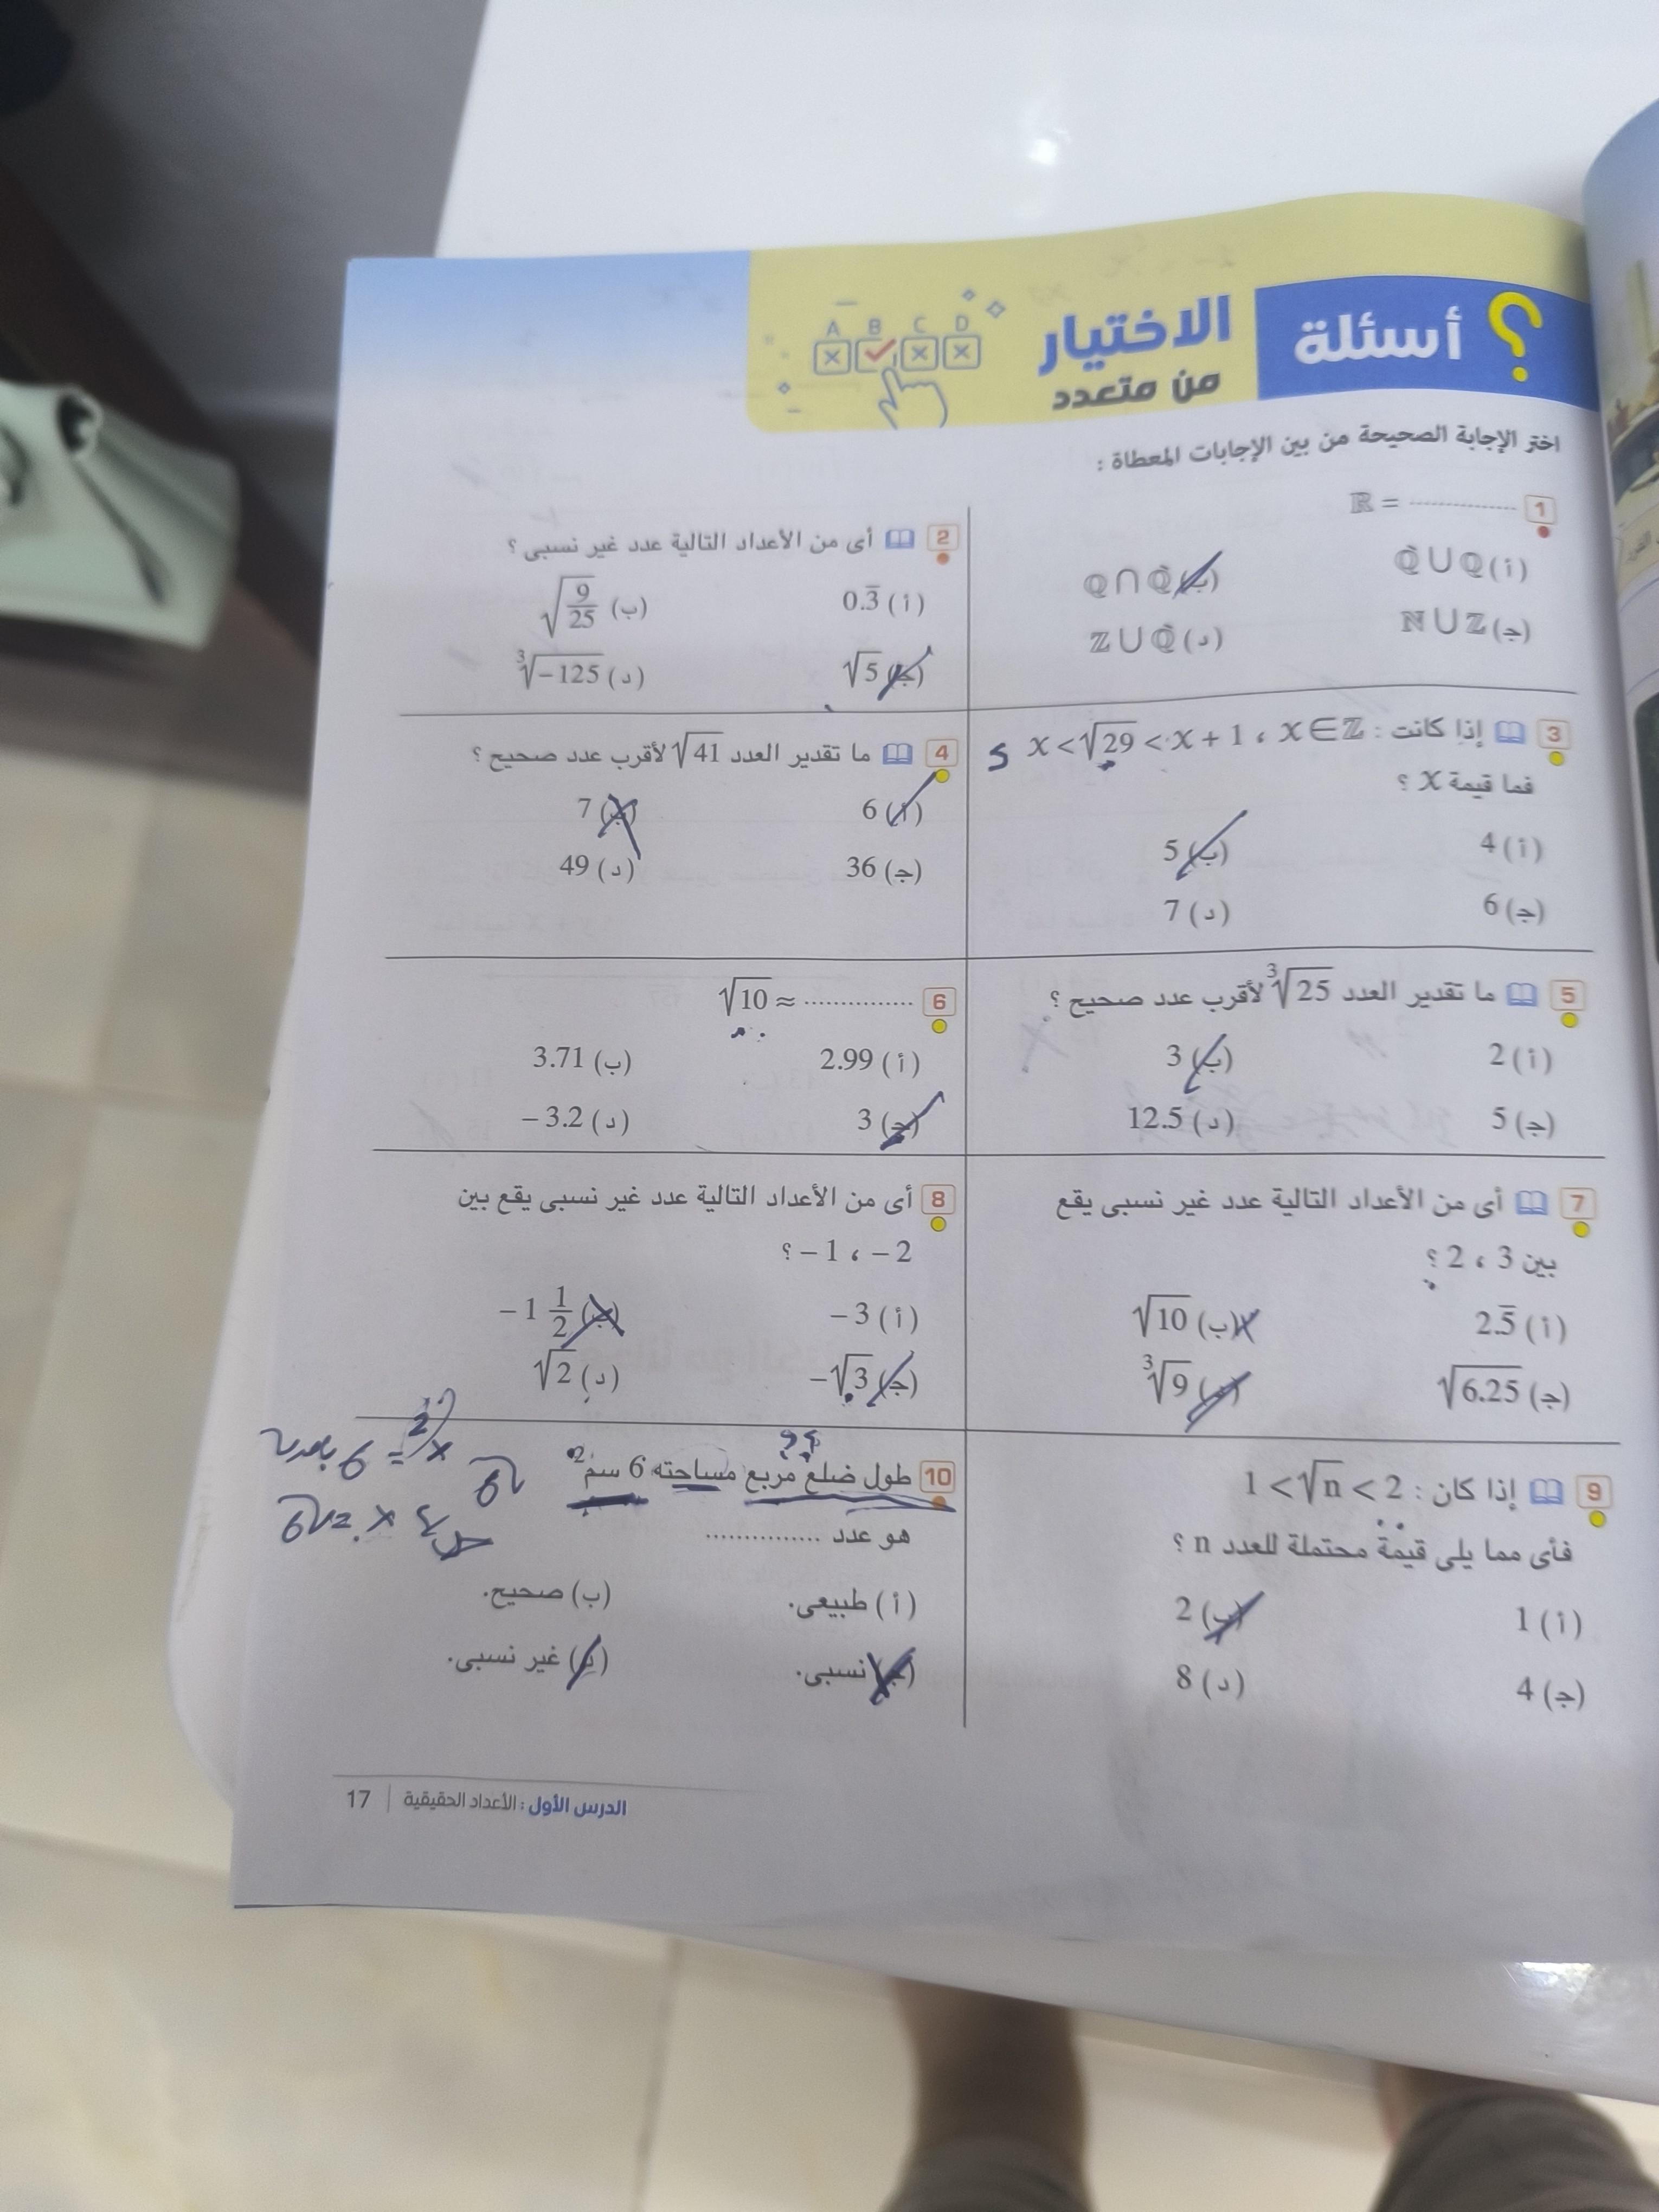 أسئلة
الاختيار
من متعدد
A B C D
اختر الإجابة الصحيحة من بين الإجابات المعطاة :
1 ℝ = ...............
(أ) ℚ̀ ∪ ℚ
(ب) ℚ ∩ ℚ̀
(ج) ℕ ∪ ℤ
(د) ℤ ∪ ℚ̀
2 أى من الأعداد التالية عدد غير نسبى ؟
(أ) 0.3̅
(ب) √(9/25)
(ج) √5
(د) ∛−125
3 إذا كانت : x < √29 < x + 1 ، x ∈ ℤ
5
فما قيمة x ؟
(أ) 4
(ب) 5
(ج) 6
(د) 7
4 ما تقدير العدد √41 لأقرب عدد صحيح ؟
(أ) 6
(ب) 7
(ج) 36
(د) 49
5 ما تقدير العدد ∛25 لأقرب عدد صحيح ؟
(أ) 2
(ب) 3
(ج) 5
(د) 12.5
6 √10 ≈ ...............
(أ) 2.99
(ب) 3.71
(ج) 3
(د) − 3.2
7 أى من الأعداد التالية عدد غير نسبى يقع
بين 3 ، 2 ؟
(أ) 2.5̅
(ب) √10
(ج) √6.25
(د) ∛9
8 أى من الأعداد التالية عدد غير نسبى يقع بين
− 2 ، − 1 ؟
(أ) − 3
(ب) − 1 1/2
(ج) −√3
(د) √2
9 إذا كان : 1 < √n < 2
فأى مما يلى قيمة محتملة للعدد n ؟
(أ) 1
(ب) 2
(ج) 4
(د) 8
10 طول ضلع مربع مساحته 6 سم²
هو عدد ...............
(أ) طبيعى.
(ب) صحيح.
(ج) نسبى.
(د) غير نسبى.
الدرس الأول : الأعداد الحقيقية | 17